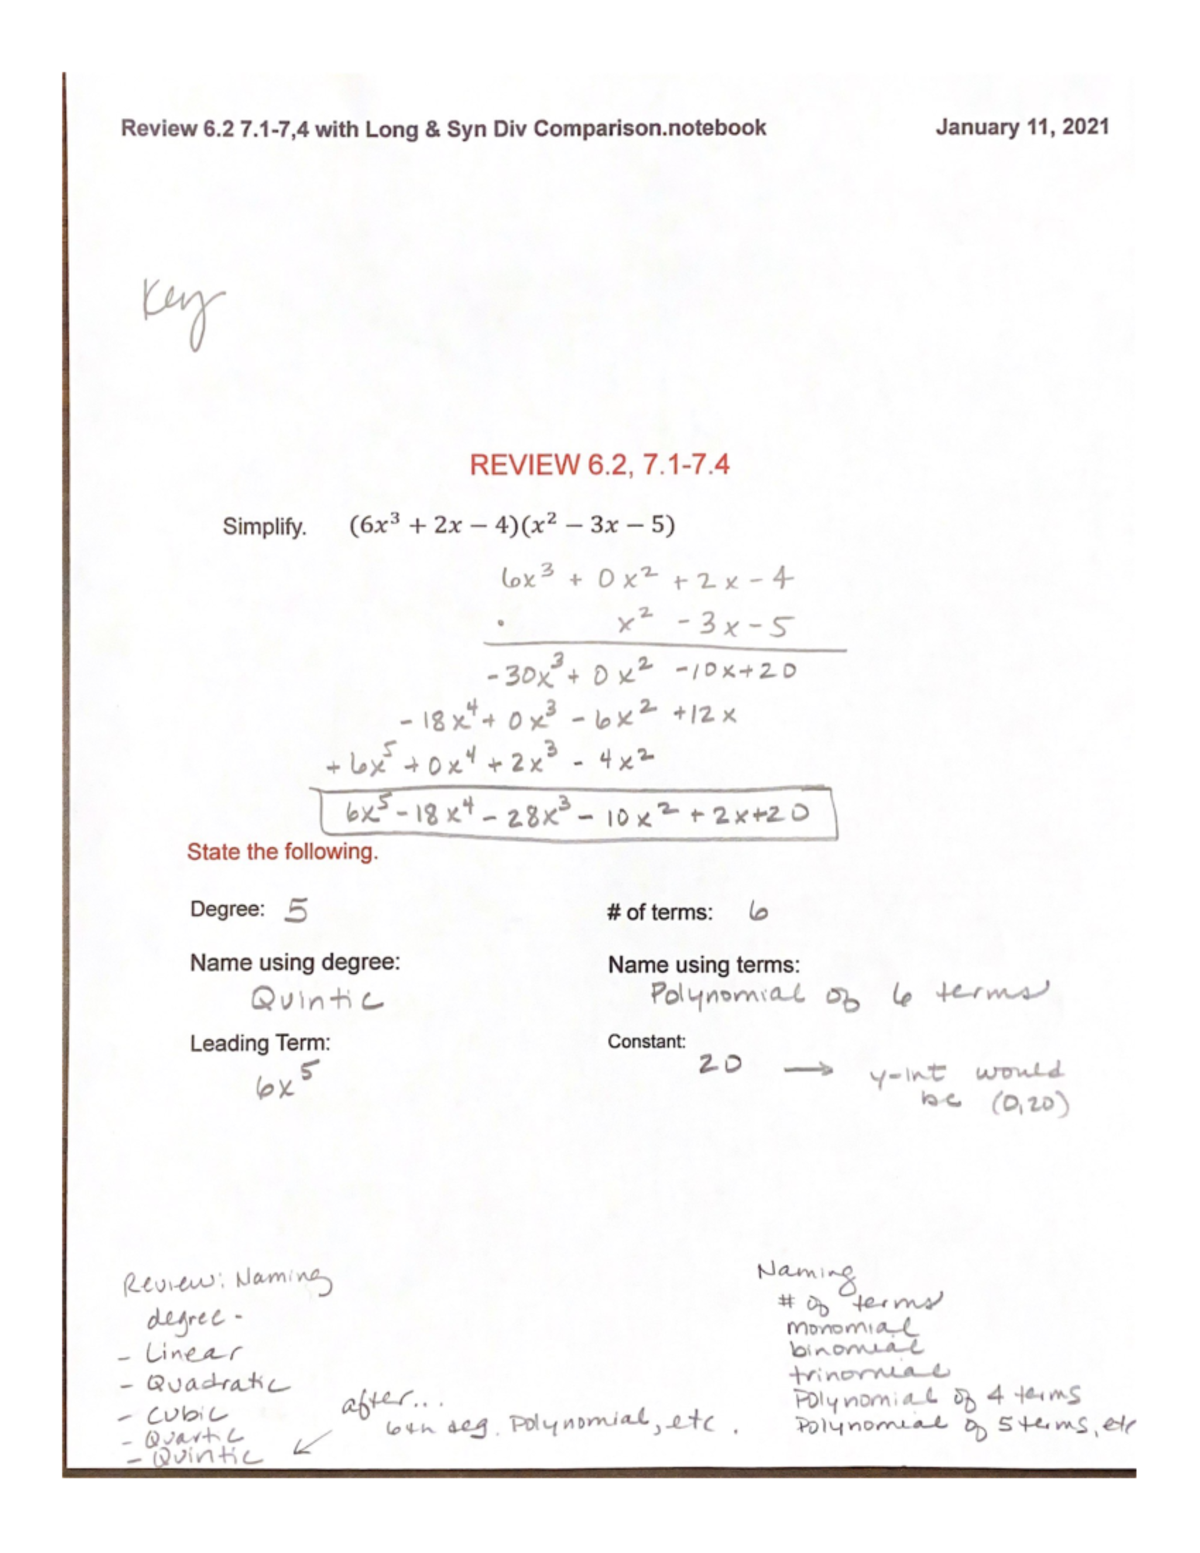 Review 6.2 7.1-7,4 with Long & Syn Div Comparison.notebook January 11, 2021
Key
REVIEW 6.2, 7.1-7.4
Simplify. (6x³ + 2x − 4)(x² − 3x − 5)
6x³ + 0x² + 2x - 4
• x² - 3x - 5
-30x³ + 0x² - 10x + 20
- 18x⁴ + 0x³ - 6x² + 12x
+ 6x⁵ + 0x⁴ + 2x³ - 4x²
6x⁵ - 18x⁴ - 28x³ - 10x² + 2x + 20
State the following.
Degree: 5 # of terms: 6
Name using degree: Name using terms:
Quintic Polynomial of 6 terms
Leading Term: Constant:
6x⁵ 20 → y-int would
be (0,20)
Review: Naming
degree -
- Linear
- Quadratic
- Cubic
- Quartic
- Quintic
after...
6th deg. Polynomial, etc.
Naming
# of terms
monomial
binomial
trinomial
Polynomial of 4 terms
Polynomial of 5 terms, etc